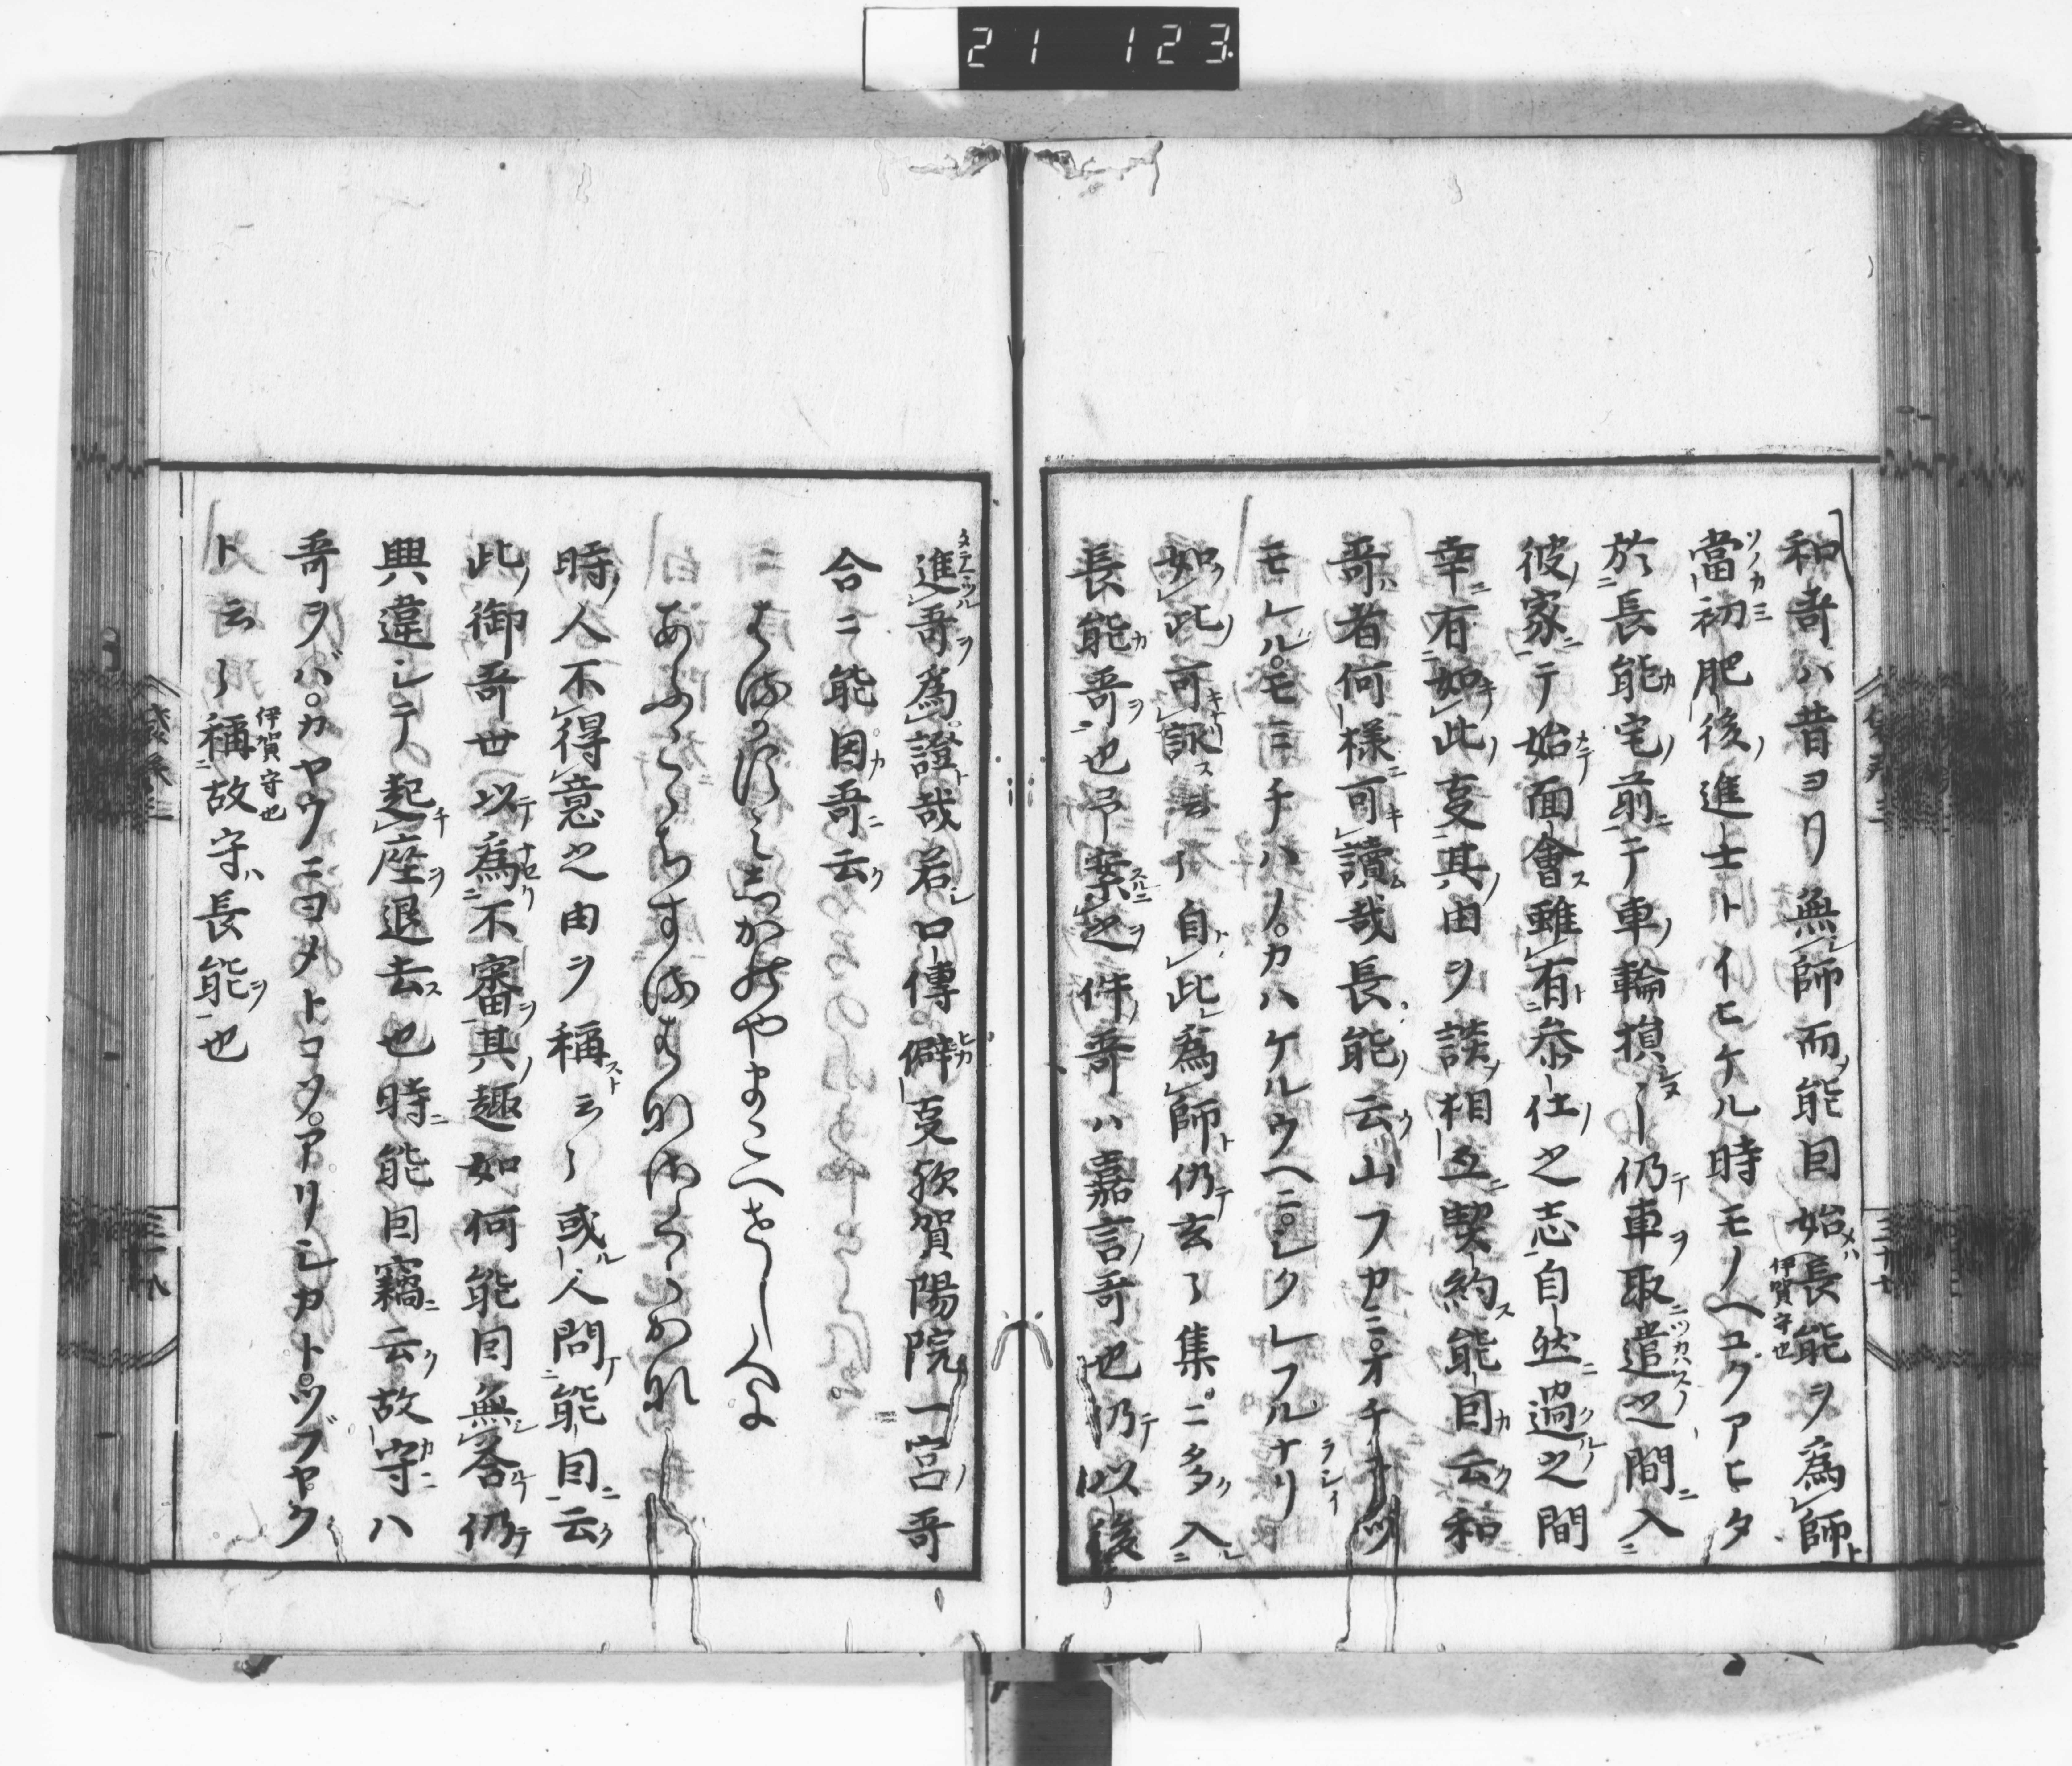 21 123
和哥ハ昔ヨリ無師而能因始長能ヲ為師
伊賀守也
當初肥後進士トイヒケル時モノヘユクアヒタ
於長能宅前ニテ車輪損シヌ仍車取遣之間入
彼家ニテ始面會雖有参仕之志自然過之間
幸有如此叓其由ヲ談相互契約能因云和
哥者何様可讀哉長能云山フカミオチテツ
モレルモミチハノカハケルウヘニシクレフルナリ
ラシイ
如此可詠云々自此為師仍玄々集ニ多入
長能哥也予案之件哥ハ嘉言哥也仍以後
進哥為證哉若口傳僻叓歟賀陽院一宮哥
合ニ能因哥云
はるかすみしかのやまこへせし人に
あふこゝちするはなさくらかな
時人不得意之由ヲ稱云々或人問能因云
此御哥世以為不審其趣如何能因無答仍
興違シテ起座退去也時能因竊云故守ハ
哥ヲバカヤウニヨメトコソアリシカトツブヤク
ト云々稱故守ハ長能也
伊賀守也